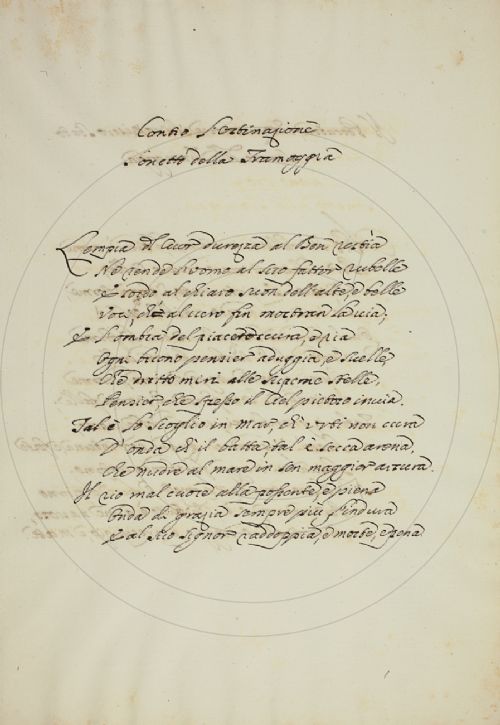 Contro l'ostinazione
Sonetto della Tramoggia
L'empia del cuor durezza al ben restia
Ne rende l'uomo al suo fattor rubelle
E sordo al chiaro suon dell'alte, e belle
voci, ch'al vero fin mostran la via;
E l'ombra del piacere oscura, e ria
Ogni buono pensier aduggia, e svelle,
Che dritto miri alle supreme stelle,
Pensier, che spesso il Ciel pietoso invia.
Tal è lo scoglio in mar, ch'urti non cura
D'onda ch'il batta, tal è secca arena,
Che nudre al mare in sen maggior arsura.
Il rio mal cuore alla possente, e piena
Onda di grazia sempre più s'indura
E al suo signor raddoppia, e morte, e pena